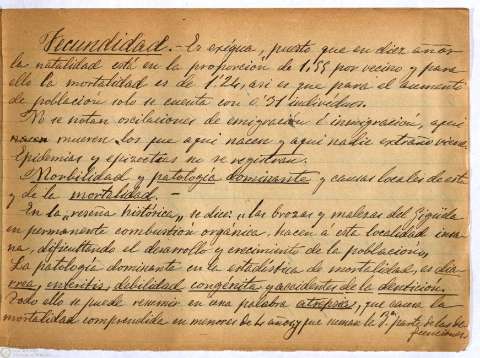 Fecundidad.- Es exigua, puesto que en diez años
la natalidad está en la proporcion de 1'55 por vecino y para
ello la mortalidad es de 1'24, asi es que para el aumento
de poblacion solo se cuenta con 0'31 individuos.
No se notan oscilaciones de emigracion é inmigracion, aqui
nacen mueren los que aqui nacen y aqui nadie extraño vive.
Epidemias y epizootias no se registran.
Morbilidad y patologia dominante y causas locales de esta
y de la mortalidad.-
En la "reseña histórica" se dice: "las brozas y malezas del Gigüela
en permanente combustion orgánica, hacen á esta localidad insa-
na, dificultando el desarrollo y crecimiento de la poblacion"
La patologia dominante en la estadistica de mortalidad, es dia-
rrea, enteritis, debilidad congenita y accidentes de la denticion.
Todo ello se puede resumir en una palabra atrepsia, que causa la
mortalidad comprendida en menores de 4 años y que suman la 3ª parte de las de-
funciones